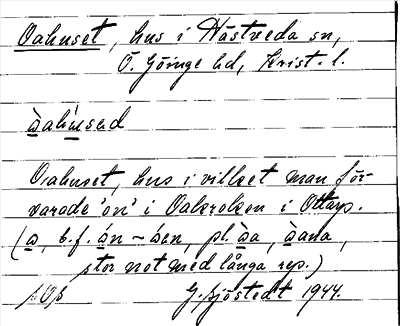 Oahuset, hus i Hästveda sn,
Ö. Göinge hd, Krist. l.
Oahuset, hus i vilket man för-
varade 'on' i Oakroken i Ottarp.
(a, b.f. án ~ áen, pl. àa, àana,
stor not med långa rep.)
G. Sjöstedt 1944.